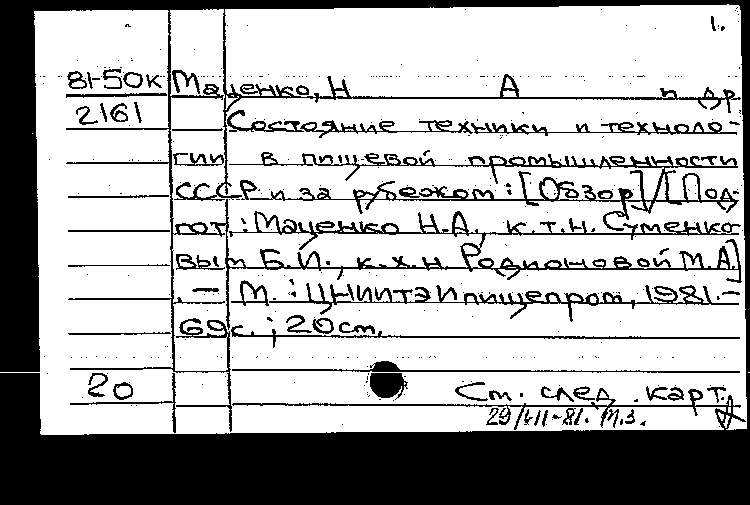 1.
81-50к Маценко, Н А и др
2161 Состояние техники и техноло-
гии в пищевой промышленности
СССР и за рубежом: [Обзор]/[Под-
гот.: Маценко Н.А., к.т.н. Суменко-
вым Б.И., к.х.н. Родионовой М.А.]
. - М.: ЦНИИТЭИпищепром, 1981.-
69с.; 20см.
20 См. след. карт.
29/VII-81. М.З.